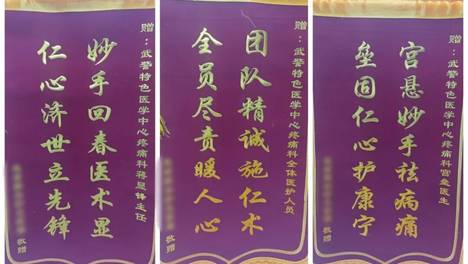 赠：武警特色医学中心疼痛科蒋显锋主任
妙手回春医术显
仁心济世立先锋
敬赠
赠：武警特色医学中心疼痛科全体医护人员
团队精诚施仁术
全员尽责暖人心
敬赠
赠：武警特色医学中心疼痛科宫垒医生
宫悬妙手祛病痛
垒固仁心护康宁
敬赠